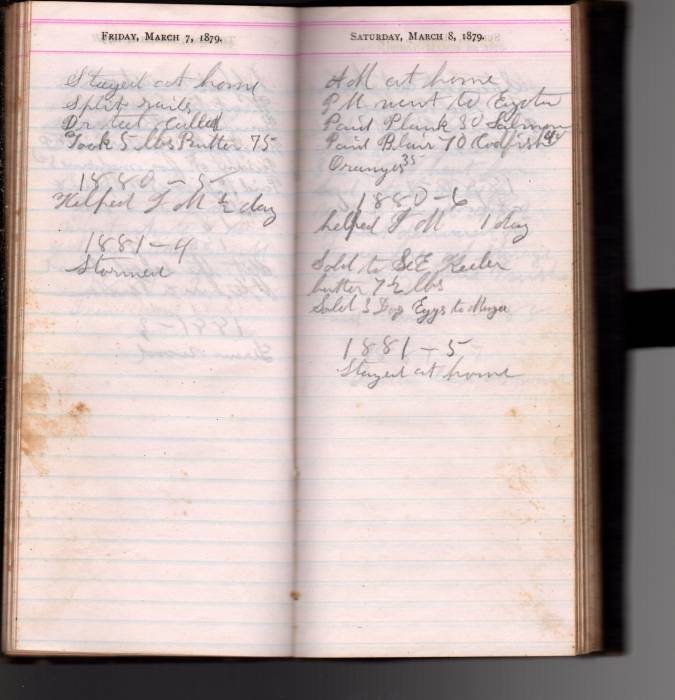 FRIDAY, MARCH 7, 1879.
Stayed at home
Split rails
Dr Teet Called
Took 5 lbs Butter 75
1880 – 5
Helped T M ½ day
1881 – 4
Stormed
SATURDAY, MARCH 8, 1879.
AM at home
PM went to Exeter
Paid Plank 30 Salmon
Paid Blair 70 Codfish 45
Oranges 35
1880 – 6
helped T M 1 day
Sold to S E Keeler
butter 7½ lbs
Sold 3 Doz Eggs to
1881 – 5
Stayed at home